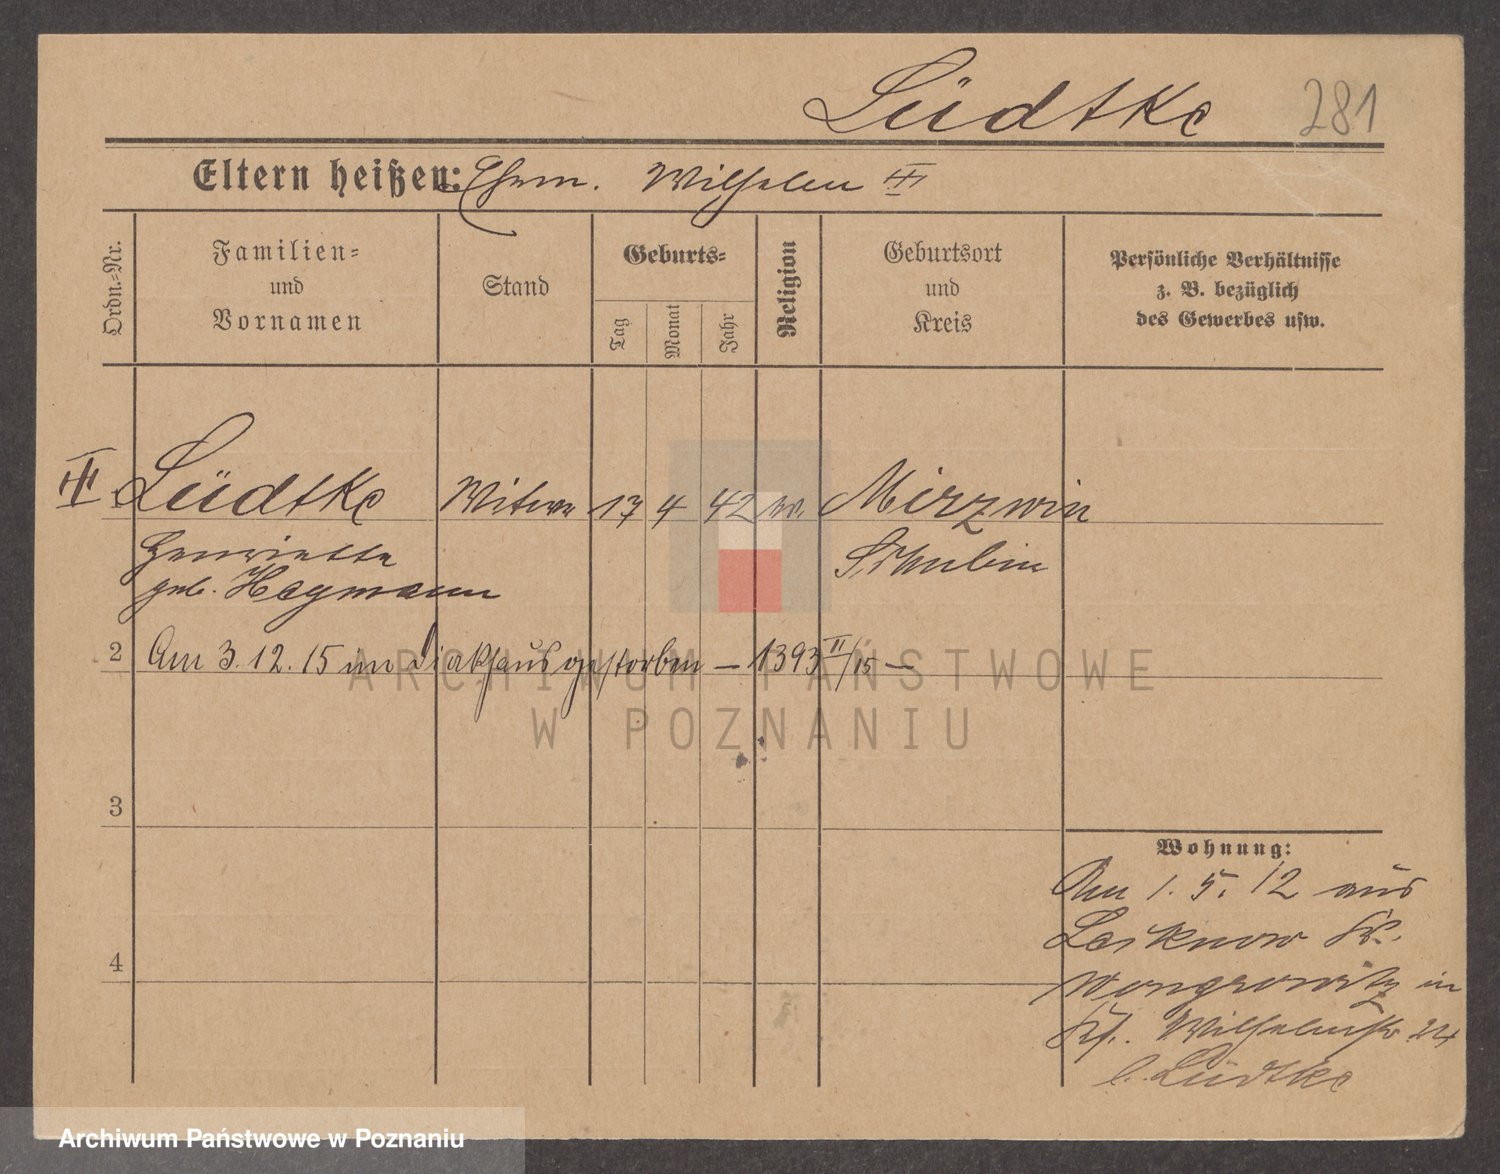 Lüdtke 281
Eltern heißen: Ehem. Wilhelm
Ordn.-Nr.
Familien- und Vornamen
Stand
Geburts-
Tag
Monat
Jahr
Religion
Geburtsort und Kreis
Persönliche Verhältnisse
z. B. bezüglich
des Gewerbes usw.
Lüdtke Witwe 17 4 42 Mirzwin
Henriette Schubin
geb. Hagmann
2 Am 3.12.15 im Diakhaus gestorben – 1393 II/15 –
3
4
Wohnung:
Am 1. 5. 12 aus
Kr.
Wongrowitz in
Wilhelmstr 24
b. Lüdtke
ARCHIWUM PAŃSTWOWE
W POZNANIU
Archiwum Państwowe w Poznaniu